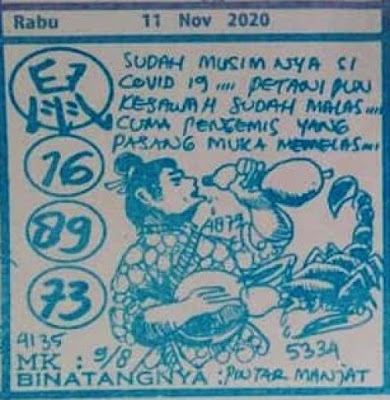 Rabu 11 Nov 2020
鼠
SUDAH MUSIM NYA SI
COVID 19 .... PETANI PUN
KESAWAH SUDAH MALAS ....
CUMA PENGEMIS YANG
PASANG MUKA MEMELAS ...
16
89
73
4874
4135
5334
MK : 9/8
BINATANGNYA : PINTAR MANJAT